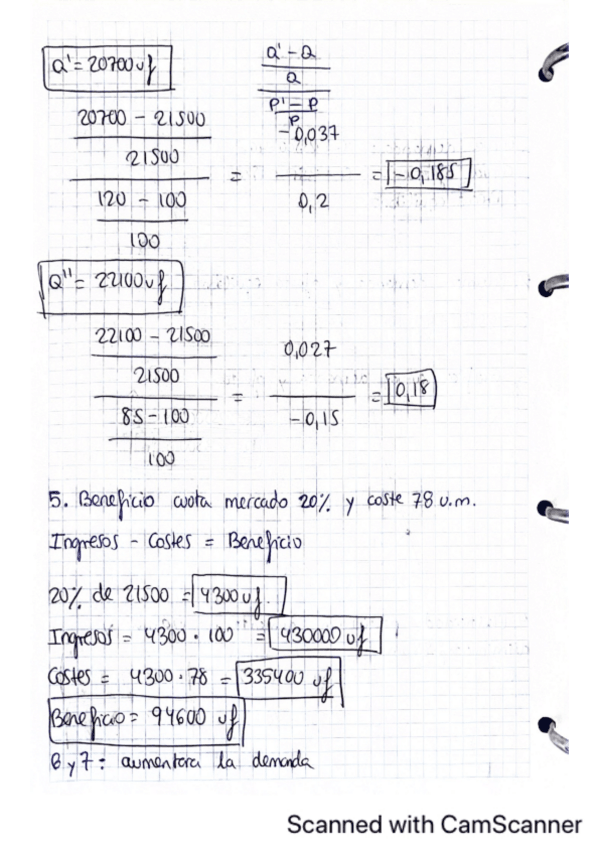 Q' = 20700 uf
Q' - Q
Q
P' - P
P
20700 - 21500
21500
120 - 100
100
=
- 0,037
0,2
= - 0,185
Q'' = 22100 uf
22100 - 21500
21500
85 - 100
100
=
0,027
- 0,15
= 0,18
5. Beneficio cuota mercado 20% y coste 78 u.m.
Ingresos - Costes = Beneficio
20% de 21500 = 4300 uf
Ingresos = 4300 · 100 = 430000 uf
Costes = 4300 · 78 = 335400 uf
Beneficio = 94600 uf
6 y 7: aumentara la demanda
Scanned with CamScanner